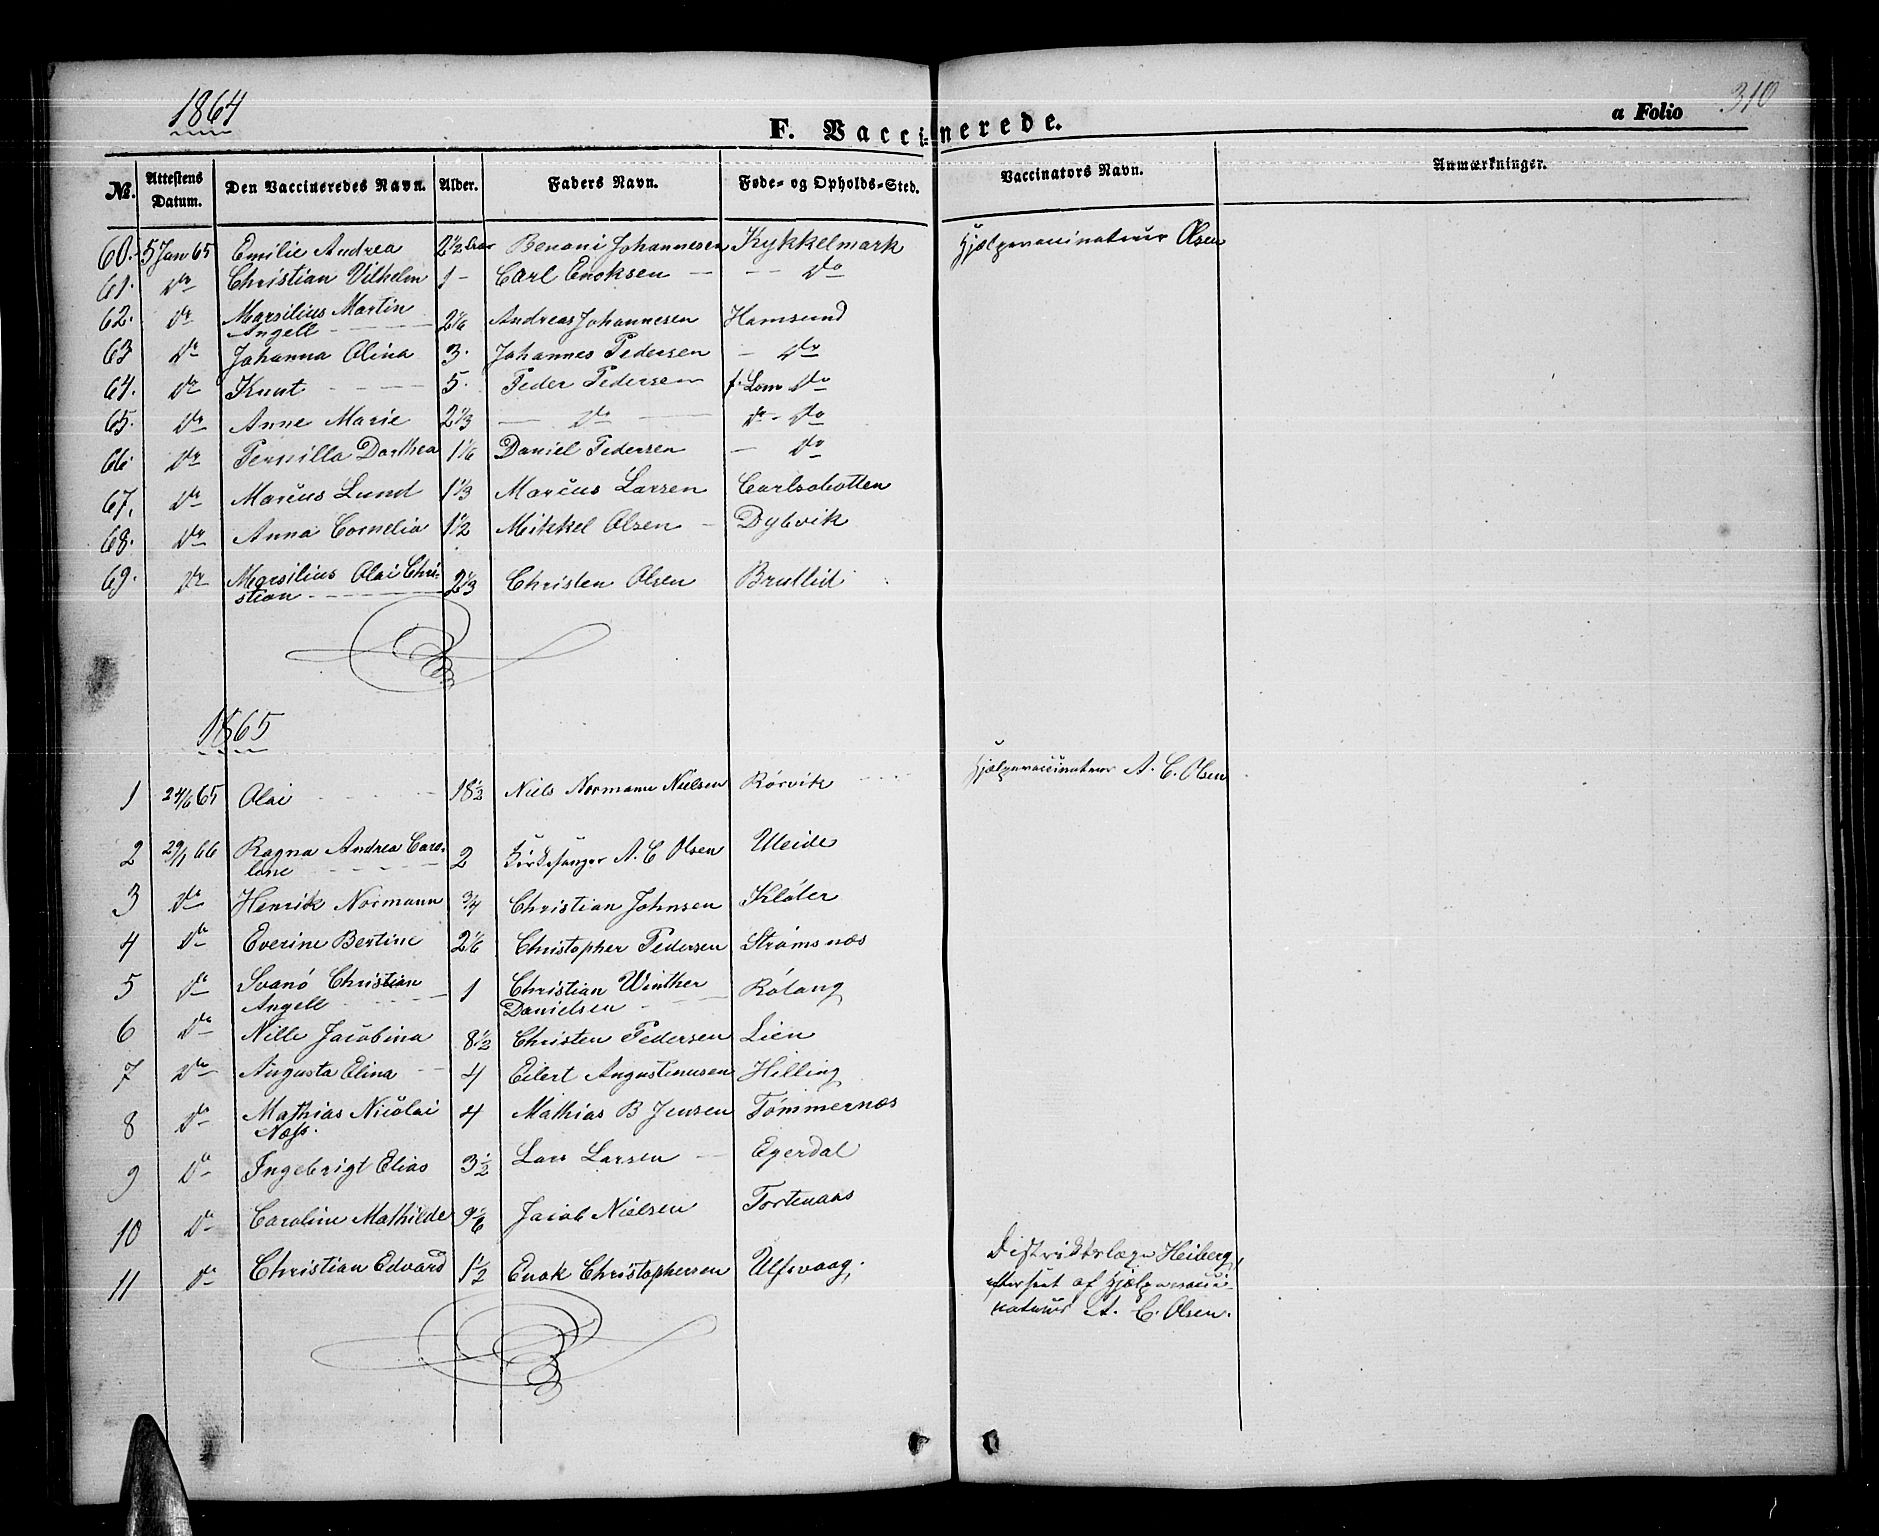 1864
F. Vaccinerede.
a Folio 310
№. Attestens Datum. Den Vaccineredes Navn. Alder. Faders Navn. Føde- og Opholds-Sted. Vaccinators Navn. Anmærkninger.
60. 5 Jan 65 Emilie Andrea 2 1/2 Benoni Johannesen Kykkelmark Hjælpevaccinateur Olsen
61. do Christian Vilhelm 1 - Carl Enoksen - - - do
62. do Marsilius Martin
Angell - - - 2 1/6 Andreas Johannesen Hamsund
63 do Johanna Olina 3. Johannes Pedersen - do
64. do Knut - - - 5. Peder Pedersen f. Lom do
65. do Anne Marie 2 1/3 - do - do - do
66 do Pernilla Dorthea 1 1/6 Daniel Pedersen - do
67. do Marcus Lund 1 1/3 Marcus Larsen Carlsbotten
68. do Anna Cornelia 1 1/2 Mikkel Olsen - Dybvik
69. do Marsilius Olai Chri-
stian - - - 2 1/3 Christen Olsen Bratlid
1865
1 24/6 65 Olai - - - 18 1/2 Niels Normann Nielsen Rørvik - - - Hjælpevaccinateur A. C. Olsen
2 29/1 66 Ragna Andrea Caro-
line - - - 2 Kirkesanger A. C Olsen Uleide
3 do Henrik Normann 3/4 Christian Johnsen Kløter
4 do Everine Bertine 2 1/6 Christopher Pedersen Strømsnæs
5 do Svanø Christian
Angell - - - 1 Christian Winther
Danielsen - - - Rølang
6 do Nille Jacobina 8 1/2 Christen Pedersen Lien
7 do Augusta Elina - 4 Eilert Angustinusen Hilling
8 do Mathias Nicolai
Næss. 4 Mathias B Jensen Tømmernæs
9 do Ingebrigt Elias 3 1/2 Lars Larsen - Egerdal
10 do Caroline Mathilde 9 1/6 Jacob Nielsen Tortenaas
11 do Christian Edvard 1 1/2 Enok Christophersen Ulfsvaag. Distriktslæge Heiberg,
efterseet af Hjælpevacci-
nateur A. C. Olsen.